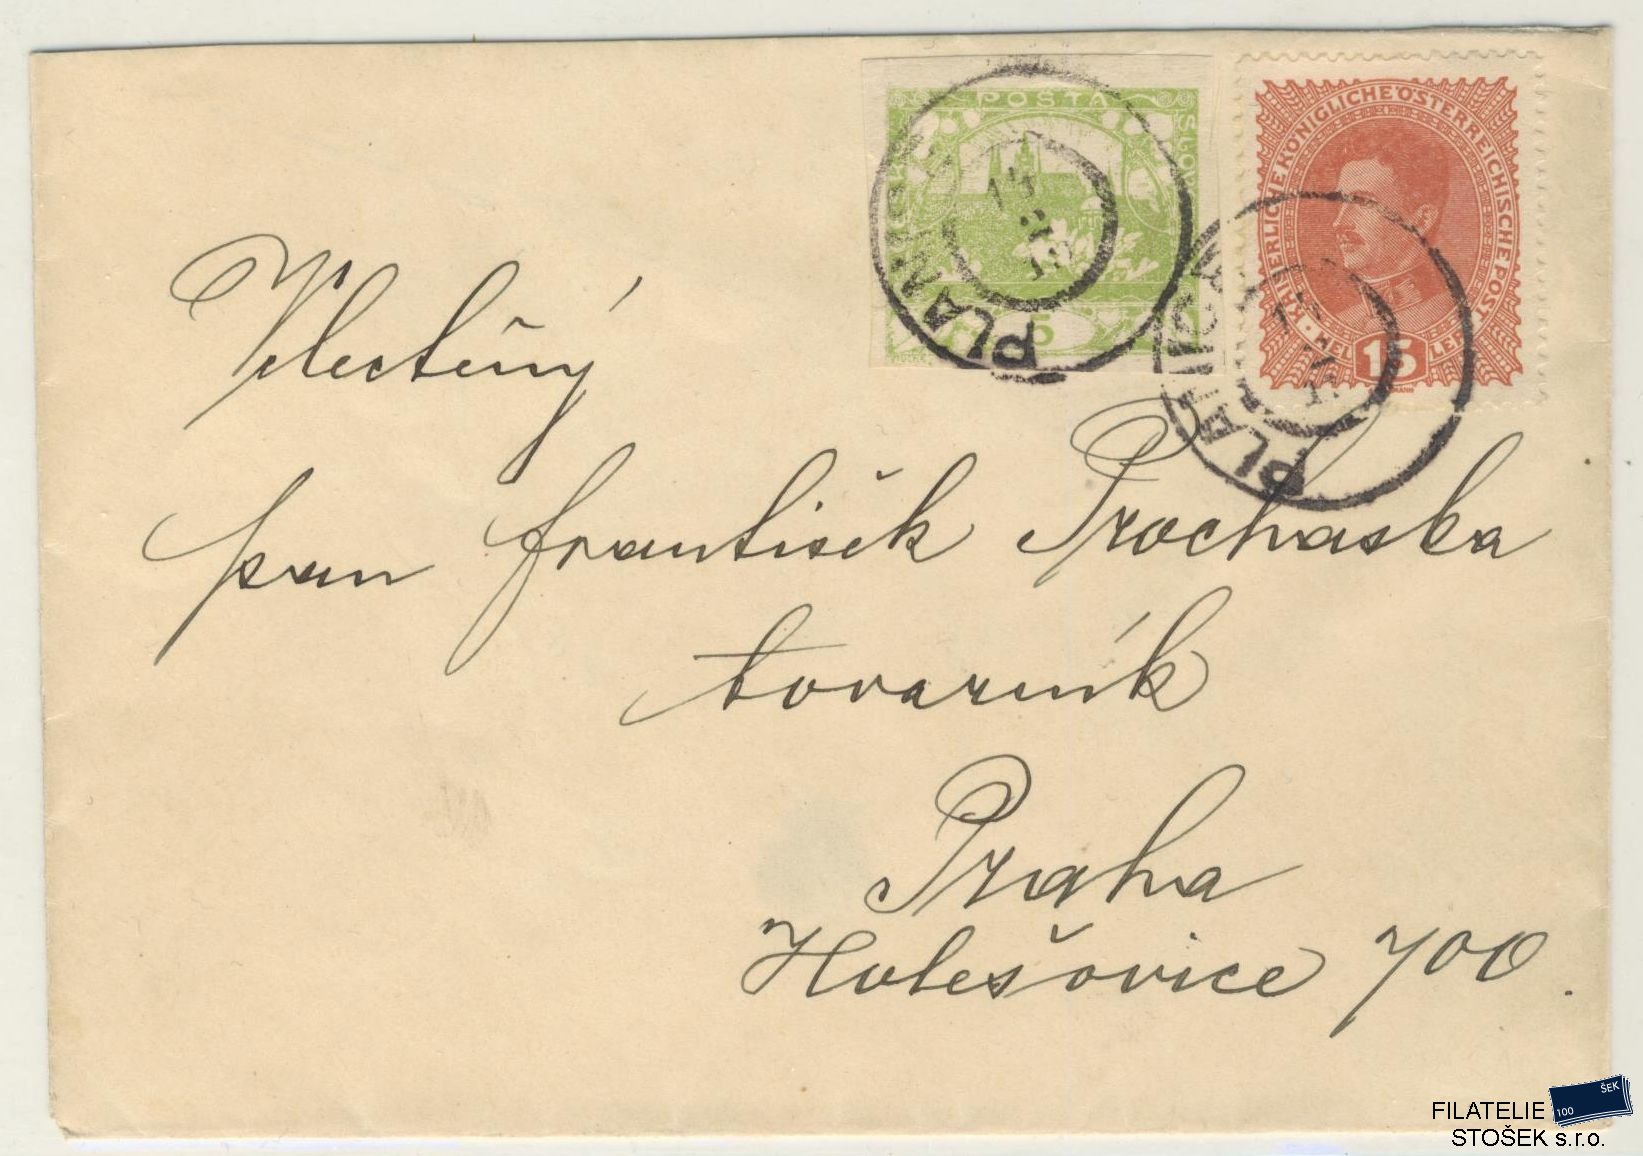 POŠTA
KAISERLICHE KÖNIGLICHE ÖSTERREICHISCHE POST
5
HELLER 15
PLANICE
PLANICE
Vlectěný
pan František Prochaska
tovarník
Praha
Holešovice 700
FILATELIE
STOŠEK s.r.o.
100
ŠEK